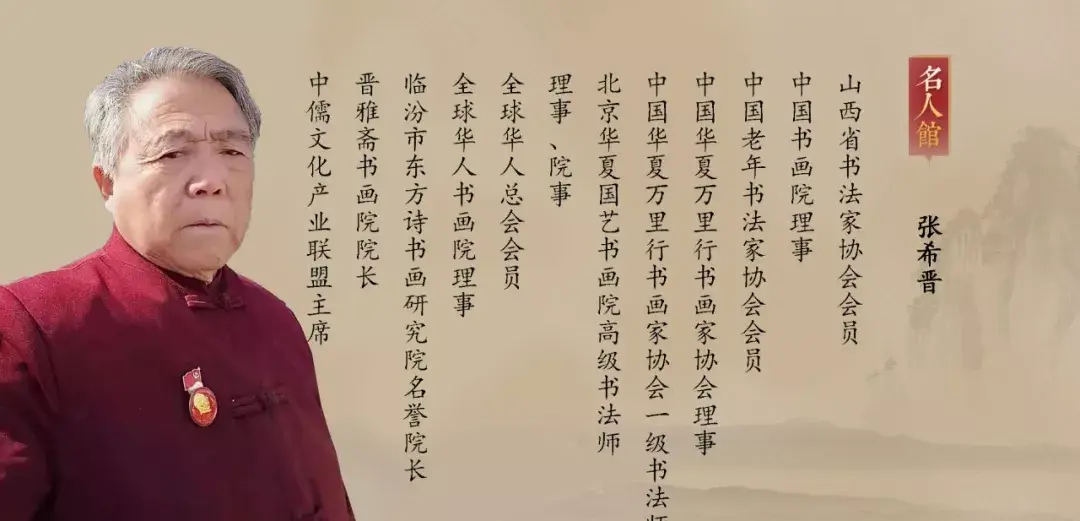 名人館
张希晋
山西省书法家协会会员
中国书画院理事
中国老年书法家协会会员
中国华夏万里行书画家协会理事
中国华夏万里行书画家协会一级书法师
北京华夏国艺书画院高级书法师
理事、院事
全球华人总会会员
全球华人书画院理事
临汾市东方诗书画研究院名誉院长
晋雅斋书画院院长
中儒文化产业联盟主席